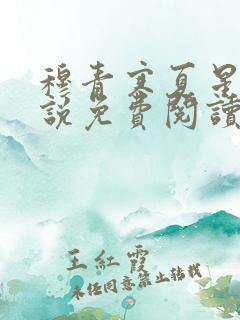 穆青寒夏星
說免費閱讀
王紅霞
未經同意禁止轉載